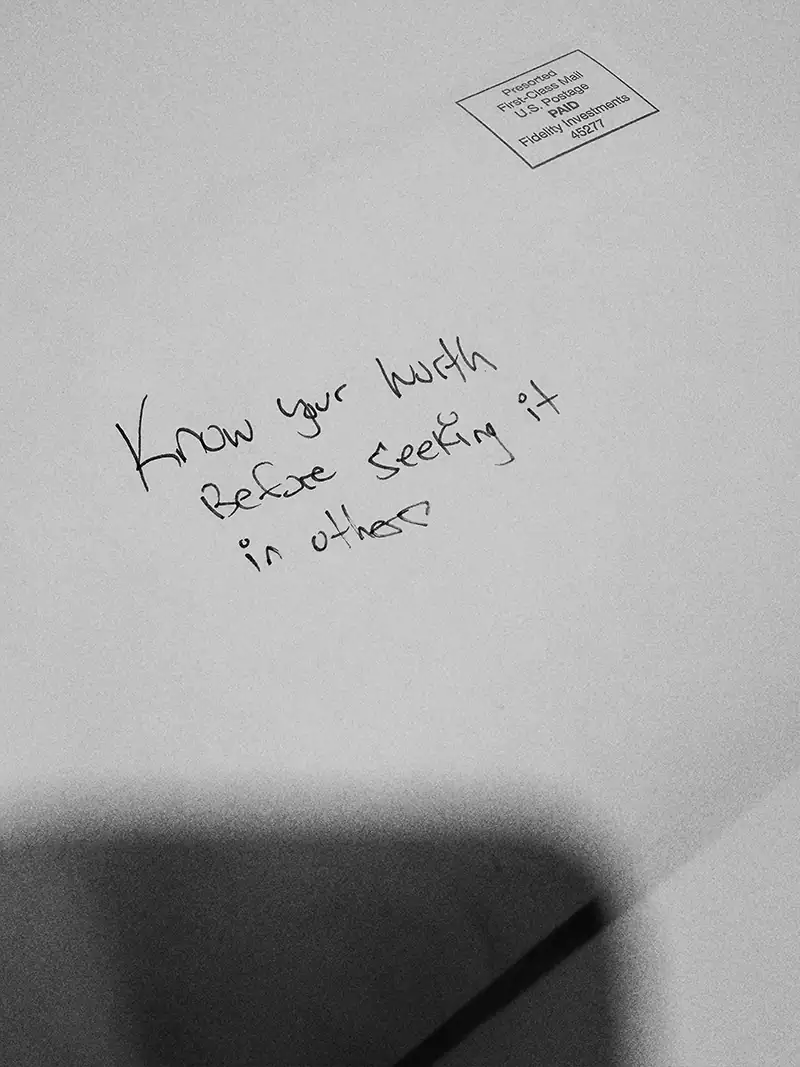 Presorted
First-Class Mail
U.S. Postage
PAID
Fidelity Investments
45277
Know your worth
Before seeking it
in others